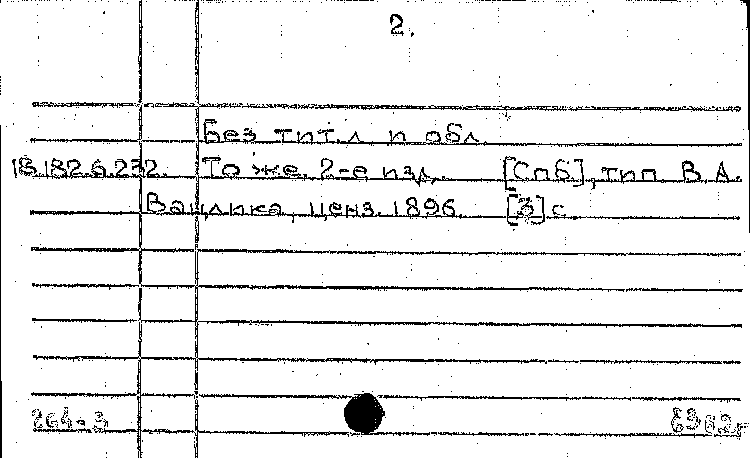 2.
Без тит. л и обл.
18.182.6.272. То же. 2-е изд. [Спб], тип В. А.
Вацлика, ценз. 1896. [3] с.
264-3